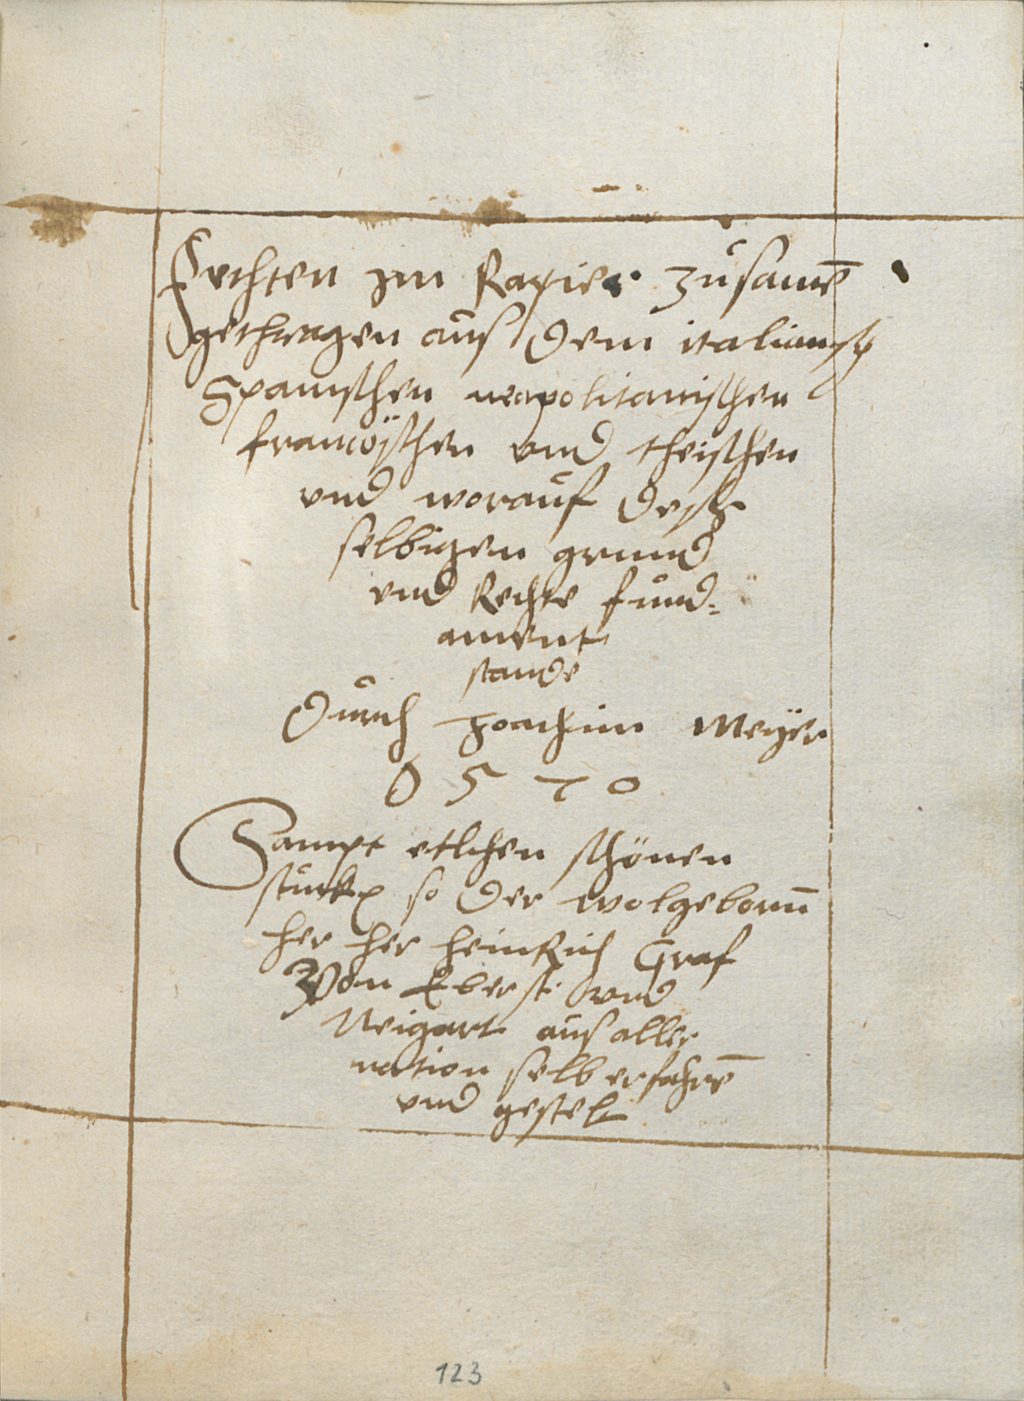 Fechten im Rapier zusamē
gethragen aus dem italiansch
Spanischen neapolitanischen
francöischen und theischen
und worauf desz
selbigen grund
und Rechte fund=
ament
stande
Durch Joachim Meÿer
1570
Sampt etlichen schönen
stucken so der wolgeborn̄
her her heinRich Graf
Von Eberst und
Neigart aus aller
nation selb erfahrē
und gestelt
123